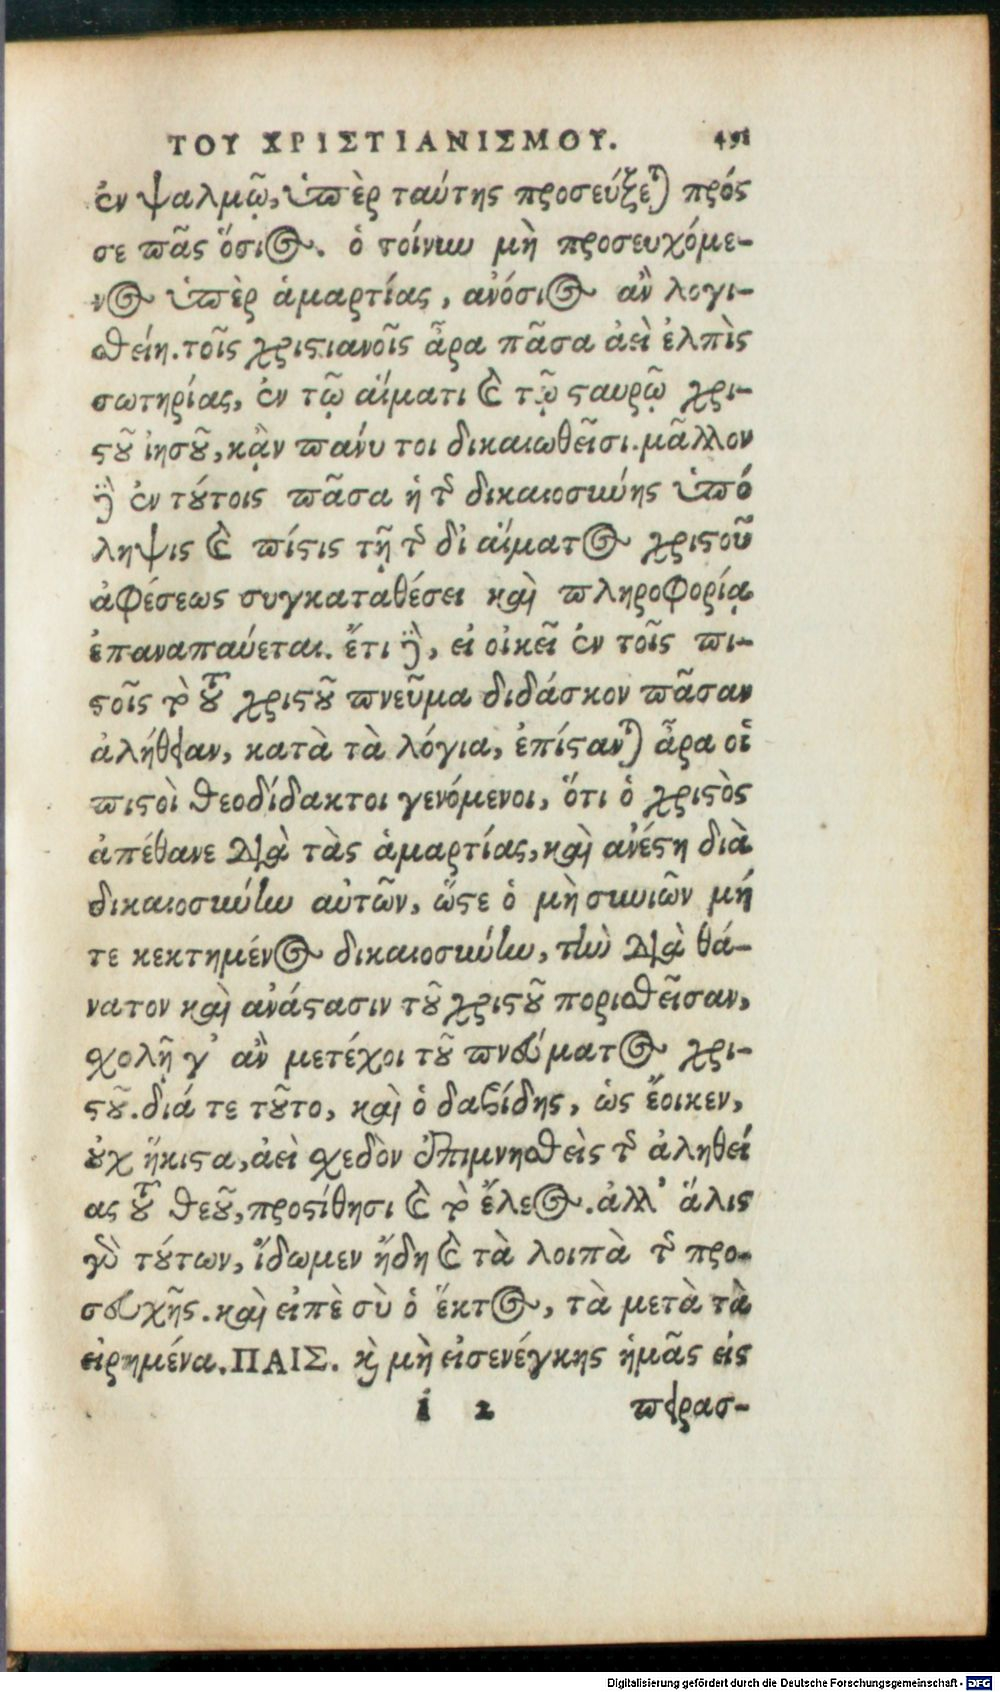 ΤΟΥ ΧΡΙΣΤΙΑΝΙΣΜΟΥ. 491
ἐν ψαλμῷ, ὑπὲρ ταύτης προσεύξεται πρός
σε πᾶς ὅσιος. ὁ τοίνυν μὴ προσευχόμε-
νος ὑπὲρ ἁμαρτίας, ἀνόσιος ἂν λογι-
σθείη. τοῖς χριστιανοῖς ἆρα πᾶσα ἀεὶ ἐλπὶς
σωτηρίας, ἐν τῷ αἵματι καὶ τῷ σταυρῷ χρι-
στοῦ ἰησοῦ, κἂν πάνυ τοι δικαιωθεῖσι. μᾶλλον
δὲ ἐν τούτοις πᾶσα ἡ τῆς δικαιοσύνης ὑπό
ληψις καὶ πίστις τῇ τῆς δι αἵματος χριστοῦ
ἀφέσεως συγκαταθέσει καὶ πληροφορίᾳ
ἐπαναπαύεται. ἔτι δὲ, εἰ οἰκεῖ ἐν τοῖς πι-
στοῖς τὸ τοῦ χριστοῦ πνεῦμα διδάσκον πᾶσαν
ἀλήθειαν, κατὰ τὰ λόγια, ἐπίστανται ἆρα οἱ
πιστοὶ θεοδίδακτοι γενόμενοι, ὅτι ὁ χριστὸς
ἀπέθανε διὰ τὰς ἁμαρτίας, καὶ ἀνέστη διὰ
δικαιοσύνην αὐτῶν, ὥστε ὁ μὴ συνιῶν μή
τε κεκτημένος δικαιοσύνην, τὴν διὰ θά-
νατον καὶ ἀνάστασιν τοῦ χριστοῦ πορισθεῖσαν,
σχολῇ γ' ἂν μετέχοι τοῦ πνεύματος χρι-
στοῦ. διά τε τοῦτο, καὶ ὁ δαβίδης, ὡς ἔοικεν,
οὐχ ἥκιστα, ἀεὶ σχεδὸν ἐπιμνησθεὶς τῆς ἀληθεί
ας τοῦ θεοῦ, προστίθησι καὶ τὸ ἔλεος. ἀλλ' ἅλις
γὰρ τούτων, ἴδωμεν ἤδη καὶ τὰ λοιπὰ τῆς προ-
σευχῆς. καὶ εἰπὲ σὺ ὁ ἕκτος, τὰ μετὰ τὰ
εἰρημένα. ΠΑΙΣ. καὶ μὴ εἰσενέγκης ἡμᾶς εἰς
i 2 πειρασ-
Digitalisierung gefördert durch die Deutsche Forschungsgemeinschaft - DFG